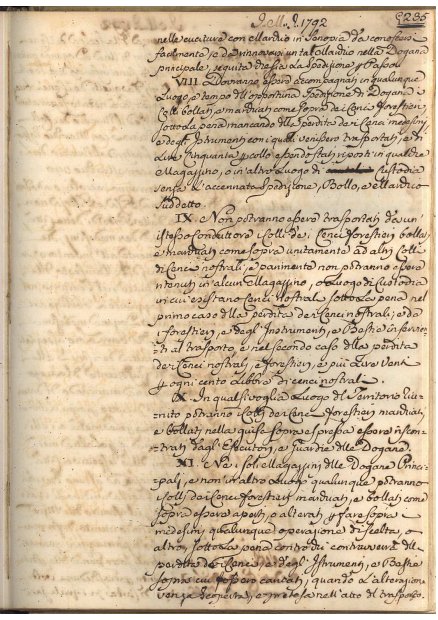 1792 235
nelle cuciture con Marchio in
facilmente, e da rinnovarsi un tal Marchio nella Dogana
principale, seguita che sia la Spedizione
VIII. Dovranno essere accompagnati in qualunque
Luogo, e tempo dell'opportuna Spedizione di Dogana i
Colli bollati, e marchiati come sopra dei Cenci forestieri,
sotto la pena mancando della perdita dei Cenci medesimi,
e degl'Istrumenti con i quali venissero trasportati, e di
Lire Cinquanta collo essendo stati riposti in qualche
Magazzino, o in altro Luogo di Custodia
senza l'accennata Spedizione, Bollo, e Marchio
suddetto.
IX. Non potranno essere trasportati da un'
istesso conduttore i Colli de' Cenci forestieri bollati,
e marchiati come sopra unitamente ad altri Colli
di Cenci nostrali, e parimente non potranno essere
ritenuti in alcun Magazzino, o Luogo di Custodia
in cui esistano Cenci Nostrali sotto la pena nel
primo caso della perdita dei Cenci nostrali, e da
i forestieri, e degl'Instrumenti, e Bestie inservien-
ti al trasporto, e nel secondo caso della perdita
dei Cenci nostrali, e forestieri, e più Lire Venti
ogni cento Libbre di cenci nostrali.
X. In qualsivoglia Luogo del Territorio Riu-
nito potranno i Colli dei Cenci forestieri marchiati,
e bollati nella guisa sopra espressa essere riscon-
trati dagl'Esecutori, e Guardie delle Dogane.
XI. Ne i soli Magazzini delle Dogane Princi-
pali, e non in altro Luogo qualunque potranno
i Colli dei Cenci forestieri marchiati, e bollati come
sopra essere aperti, o alterati fare sopra i
medesimi qualunque operazione di scelta, o
altro, sotto la pena contro dei contravventori della
perdita dei Cenci, e degl'Istrumenti, e Bestie
sopra cui fossero caricati, quando l'alterazione
venga scoperta, e pretesa nell'atto del trasporto.